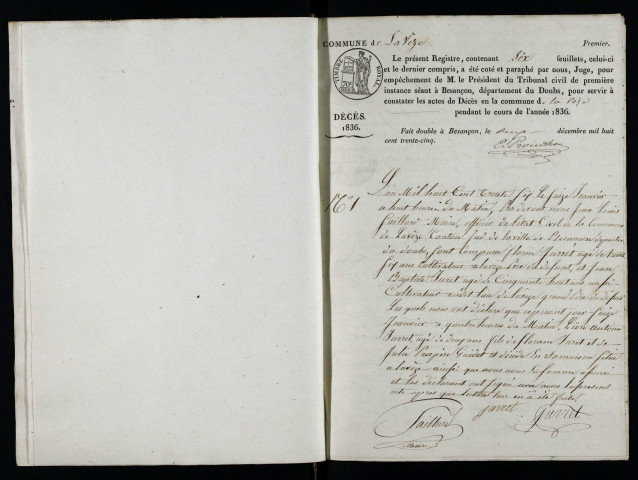 COMMUNE de La Vèze
Premier.
Le présent Registre, contenant six feuillets, celui-ci
et le dernier compris, a été coté et paraphé par nous, Juge, pour
empêchement de M. le Président du Tribunal civil de première
instance séant à Besançon, département du Doubs, pour servir à
constater les actes de Décès en la commune de la Vèze
pendant le cours de l'année 1836.
TIMBRE ROYAL
DÉCÈS.
1836.
Fait double à Besançon, le décembre mil huit
cent trente-cinq.
N° 1
L'an Mil huit Cent trente six le seize Janvier
a huit heures du Matin, Par devant nous Jean Louis
Faillard Maire, officier de l'état Civil de la Commune
de Lavèze Canton sud de la ville de Besançon
du doubs, sont Comparu florin Jurret agé de trente
six ans Cultivateur a lavèze père du défunt, et Jean
Baptiste Juret agé de Cinquante huit ans aussi
Cultivateur audit lieu de lavèze grand père du défunt
Les quels nous ont déclaré que cejourd'hui seize
Janvier a quatre heures du Matin, Léon antoine
Jurret, agé de douze ans fils de florin Juret et de
Julie Guidet est décédé En sa maison située
a lavèze ainsi que nous nous en sommes assuré
et les déclarant ont signé avec nous le présent
acte après que lecture leur en a été faite
Faillard
Jurret
Jurret
Maire